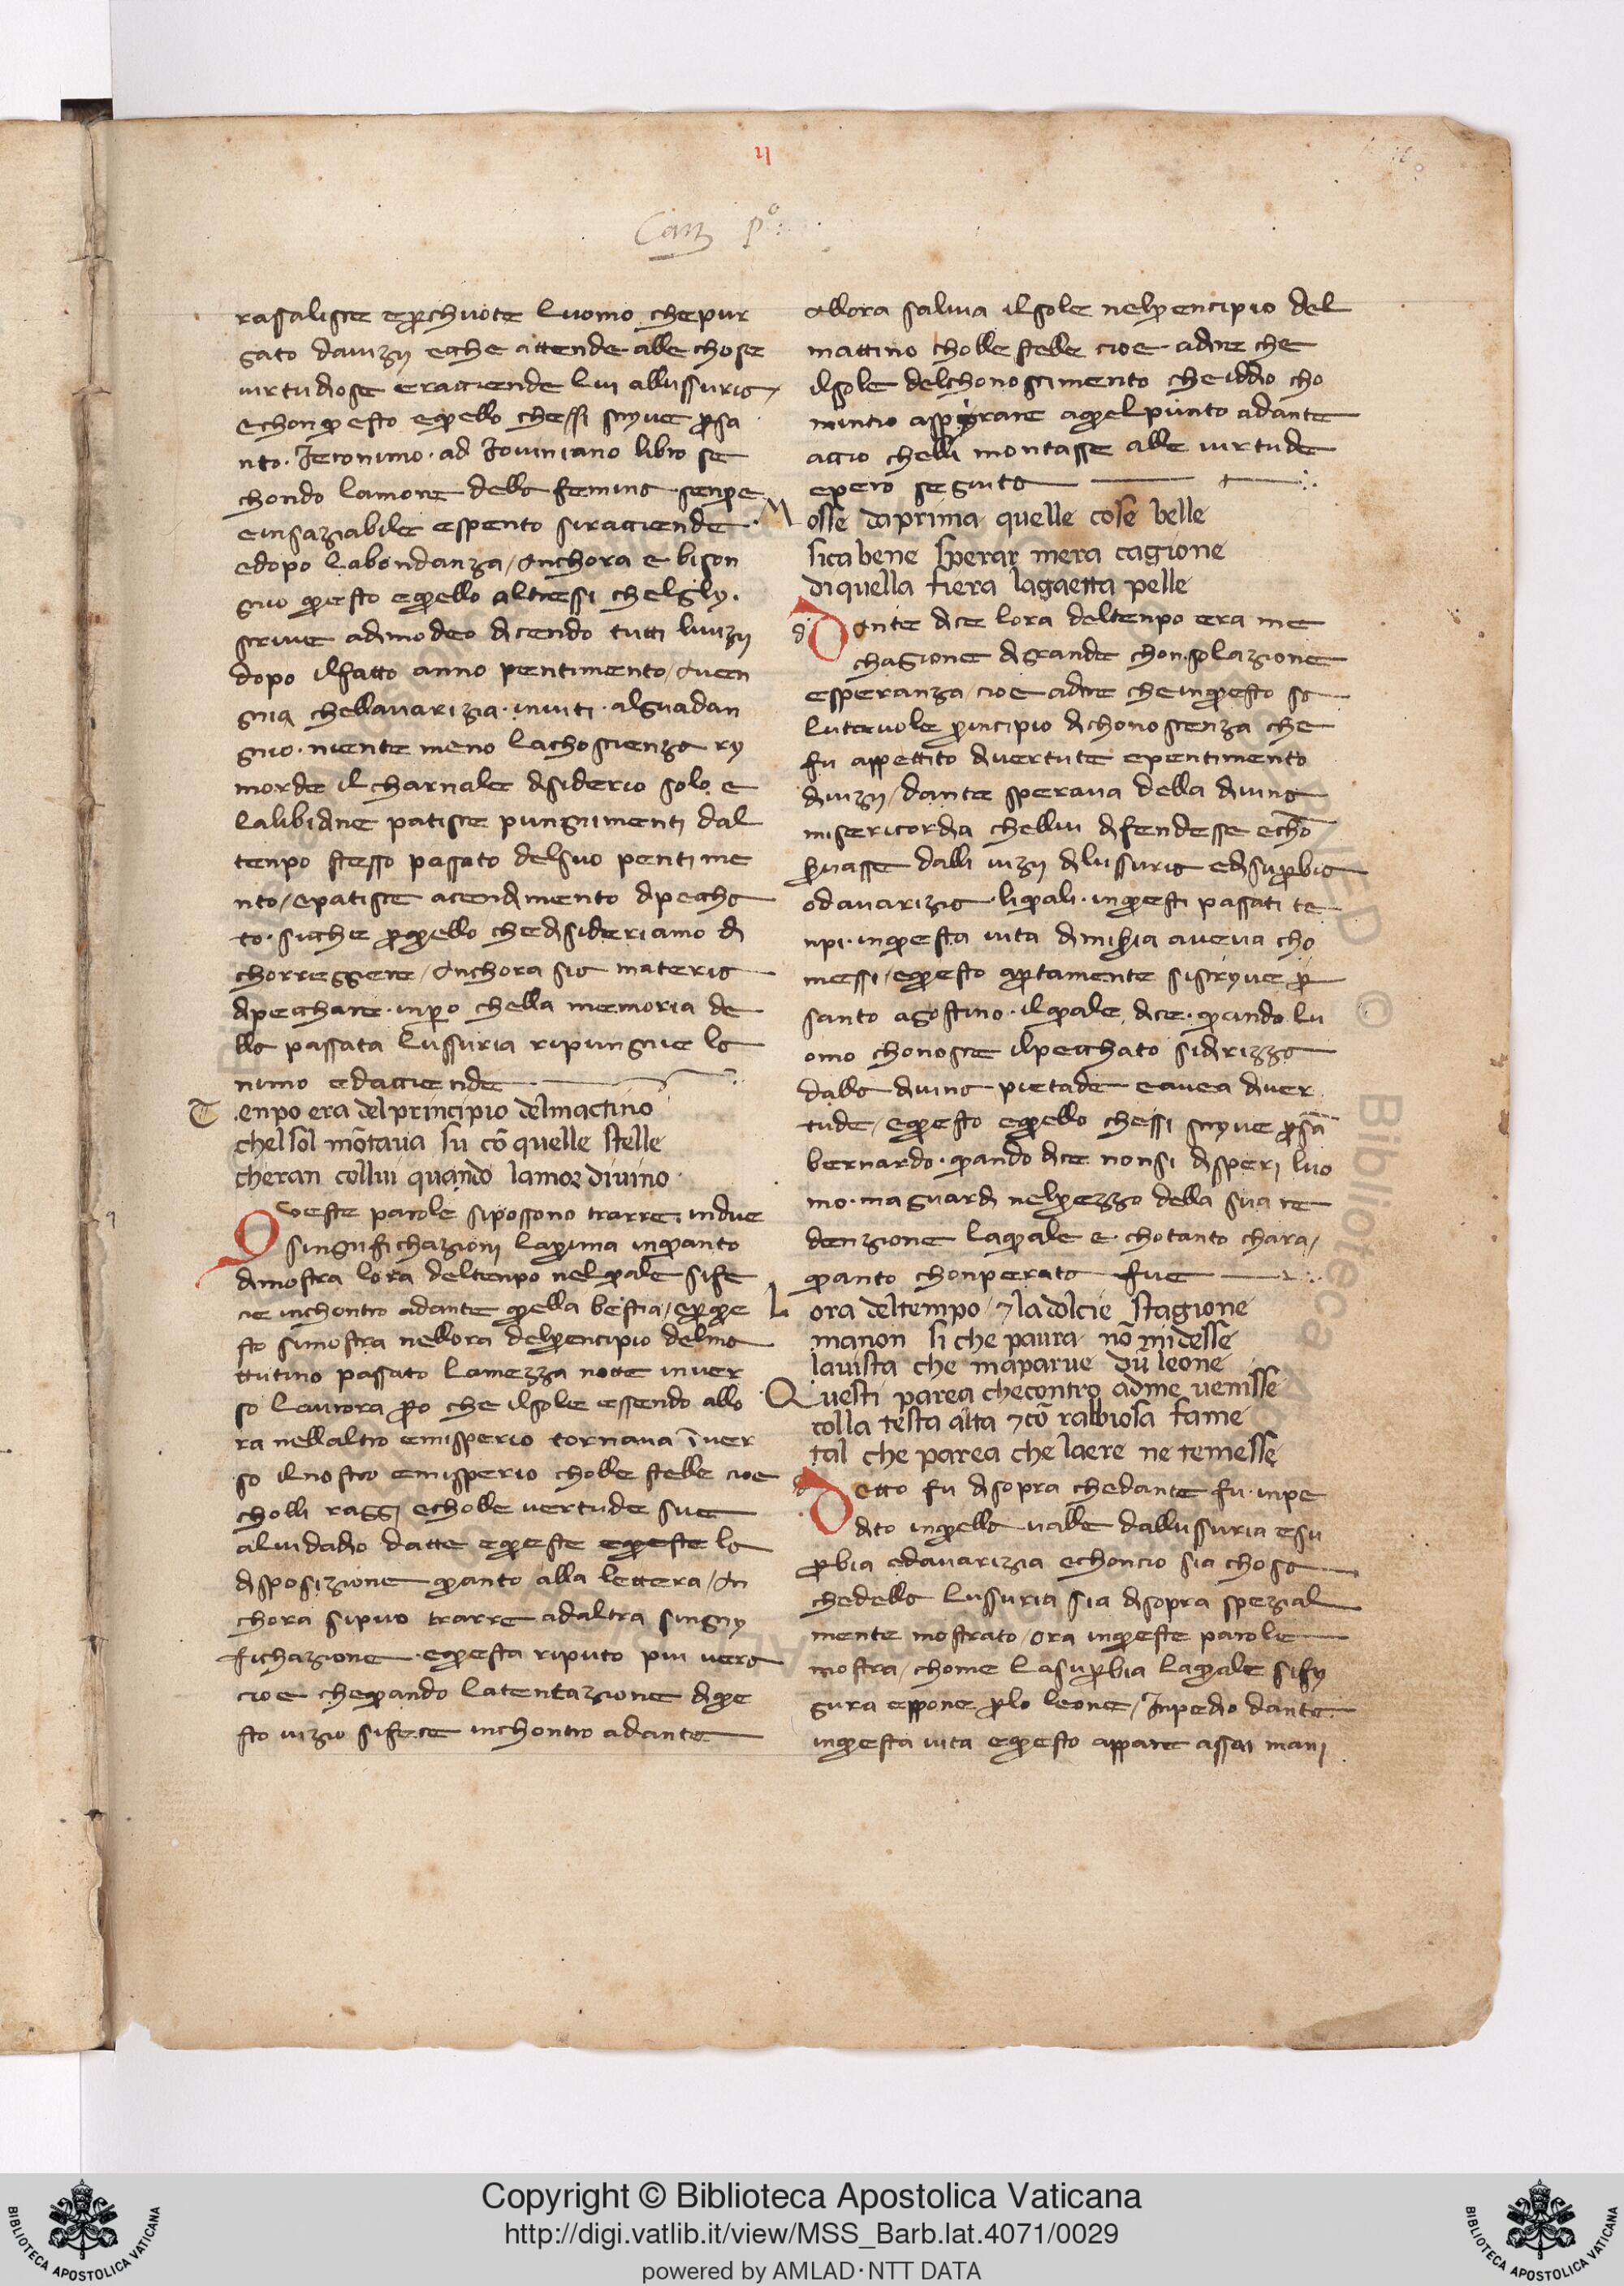 ıı
Canz pº
rasalisce eperchuote luomo chepur
gato davizij echе attende alle chose
virtudiose eracciende lui allussuria
echonquesto equello chessi scryve persa
nto Jeronimo ad Joviniano libro se
chondo lamore della femina senpre
einsaziabile espento siracciende
edopo labondanza anchora e bison
gnio questo equello altressi chelgly
scrive adamodeo dicendo tutti livizij
dopo ilfatto anno pentimento aven
gnia chellavarizia inviti alguadan
gnio niente meno lachoscienza ry
morde il charnale disiderio solo e
lalibidine patisce pungnimenti dal
tenpo stesso passato delsuo pentime
nto epatisce acendimento dipecha
to sicche perquello chedisideriamo di
chorreggiere anchora sia materia
dipecchare inpero chella memoria de
lla passata lussuria ripungnie la
nimo edacciende
T enpo era del principio delmactino
chelsol mōtava su cō quelle stelle
cheran collui quando lamor divino
Queste parole sipossono trarre indue
singnifichazioni laprima inquanto
dimostra lora deltenpo nelquale sife
cie inchontro adante quella bestia eperque
sto simostra nellora delprencipio delma
ttutino passato lamezza notte inver
so laurora pero che ilsole essendo allo
ra nellaltro emisperio tornava īver
so ilnostro emisperio cholle stelle cioe
cholli raggi echolle vertude sue
aluidadio datte equeste equeste la
disposizione quanto alla lettera An
chora sipuo trarre adaltra singny
fichazione equesta riputo piu vera
cioe chequando latentazione dique
sto vizio sifece inchontro adante
Allora saliva ilsole nelprencipio del
mattino cholle stelle cioe adire che
ilsole delchonoscimento cheiddio cho
mincio aspyrare aquelpunto adante
accio chelli montasse alle virtude
epero seguita
M osse daprima quelle cose belle
sicabene sperar mera cagione
diquella fiera lagaetta pelle
Dante dice lora deltenpo era me
chagione digrande chonsolazione
esperanza cioe adire cheinquesto sa
lutevole principio dichonoscenza che
fu appettito divertute epentimento
divizij dante sperava della divina
misericordia chellui difendesse echō
servasse dalli vizij dilussuria edisuperbia
odavarizia liquali inquesti passati te
npi inquesta vita dimiseria aveva cho
messi equesto apertamente siscryve per
santo agostino ilquale dice quando lu
omo chonosce ilpecchato sidirizza
dalla divina pietade eavea diver
tude equesto equello chessi scryve persā
bernardo quando dice nonsi disperi luo
mo maguardi nelprezzo della sua re
denzione laquale e chotanto chara
quanto chonperata fue
L ora deltempo ⁊ladolcie stagione
manon si che paura nō midesse
lavista che maparve dū leone
Questi parea checontro adme venisse
colla testa alta ⁊cō rabbiosa fame
tal che parea che laere ne temesse
Detto fu disopra chedante fu inpe
dito inquella valle dallussuria esu
perbia edavarizia echoncio sia chosa
chedella lussuria sia disopra spezial
mente mostrato ora inqueste parole
mostra chome lasuperbia laquale sify
gura eppone perlo leone Inpedio dante
inquesta vita equesto appare assai mani
Copyright © Biblioteca Apostolica Vaticana
http://digi.vatlib.it/view/MSS_Barb.lat.4071/0029
powered by AMLAD·NTT DATA
BIBLIOTECA APOSTOLICA VATICANA
BIBLIOTECA APOSTOLICA VATICANA